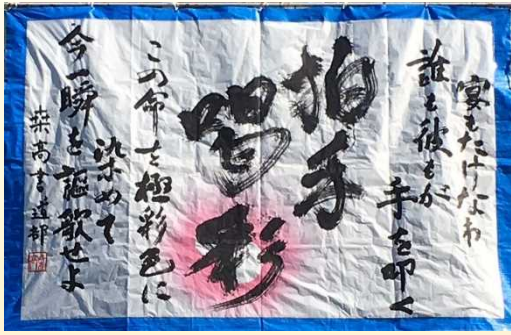 宴もたけなわ
誰も彼もが
手を叩く
拍手
喝彩
この命を極彩色に
染めて
今一瞬を謳歌せよ
築高書道部